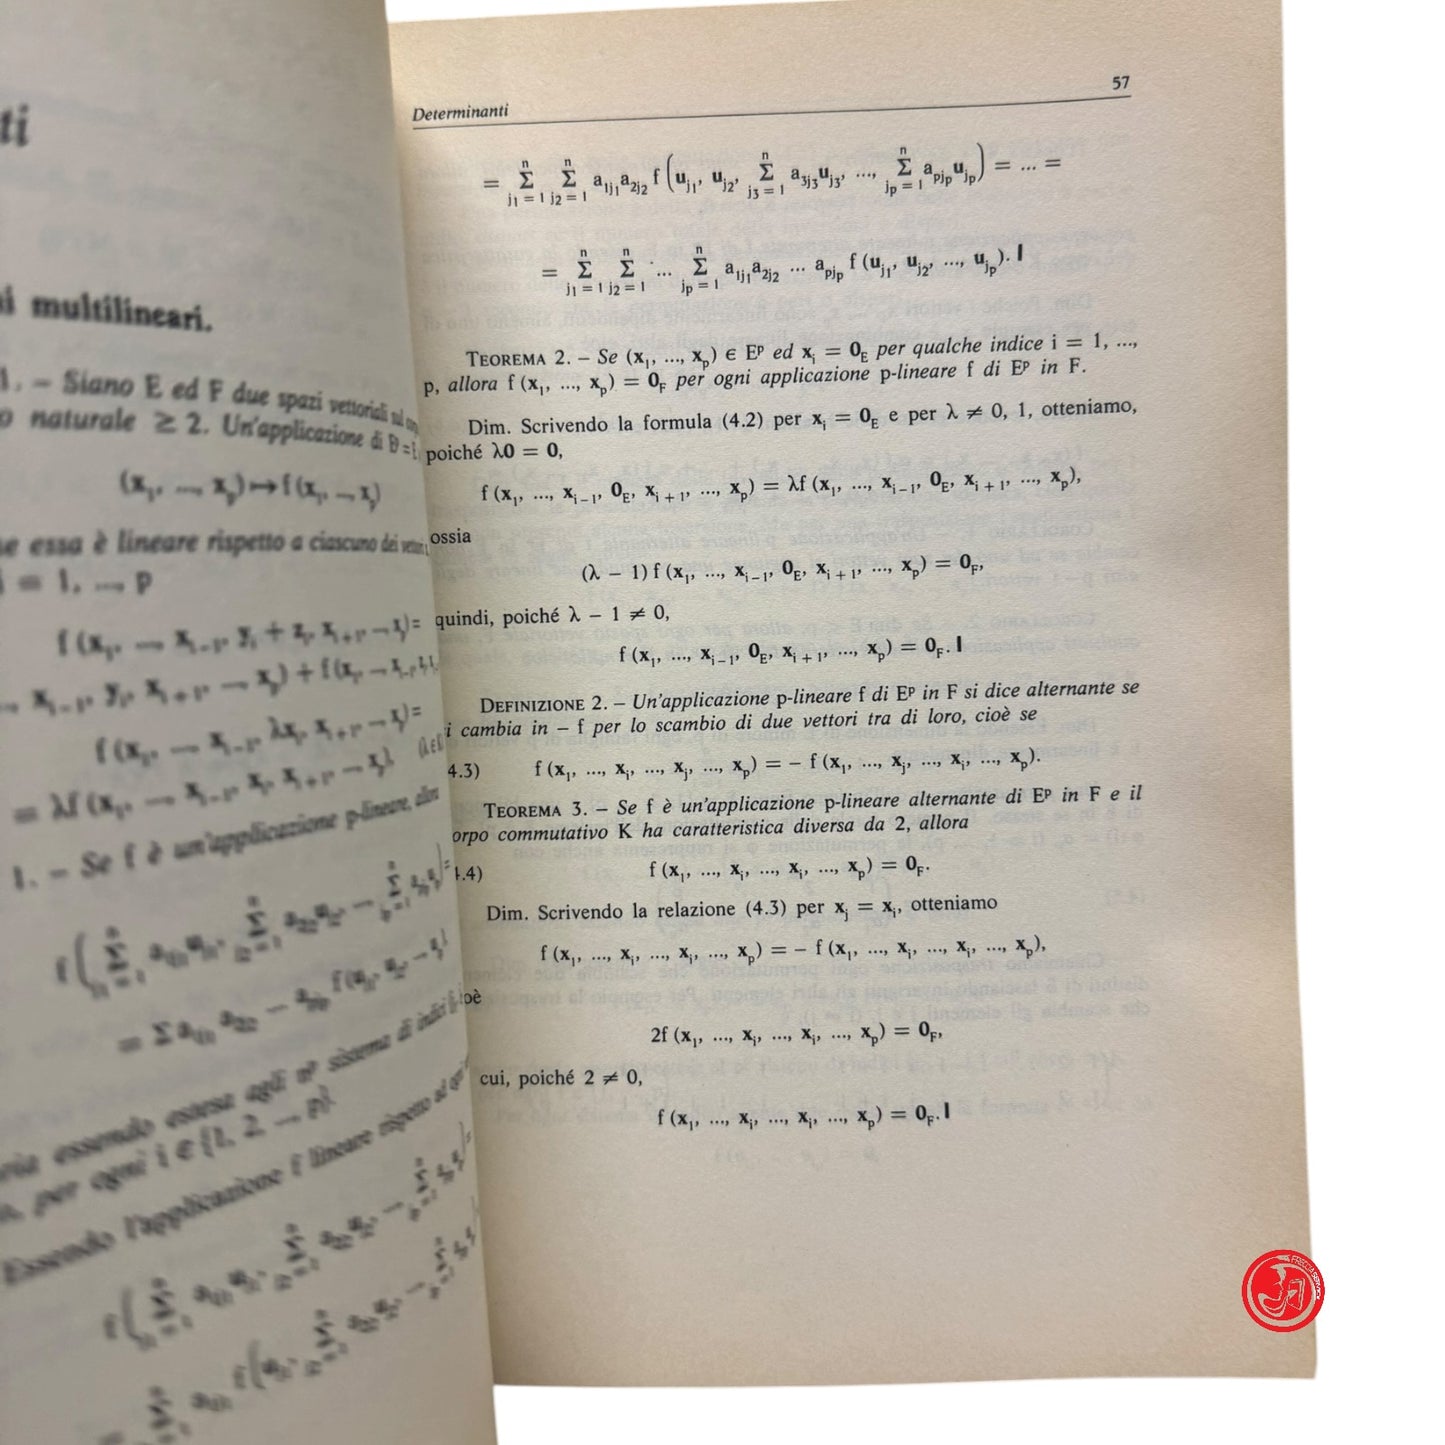 ti
i multilineari.
1. – Siano E ed F due spazi vettoriali sul
o naturale ≥ 2. Un'applicazione di
(x₁, ..., xₚ) ↦ f (x₁, ..., xₚ)
se essa è lineare rispetto a ciascuno dei vettori
i = 1, ..., p
f (x₁, ..., xᵢ₋₁, yᵢ + zᵢ, xᵢ₊₁, ..., xₚ) =
..., xᵢ₋₁, yᵢ, xᵢ₊₁, ..., xₚ) + f (x₁, ..., xᵢ₋₁, zᵢ,
f (x₁, ..., xᵢ₋₁, λxᵢ, xᵢ₊₁, ..., xₚ) =
= λf (x₁, ..., xᵢ₋₁, xᵢ, xᵢ₊₁, ..., xₚ),
1. – Se f è un'applicazione p-lineare, allora
essendo estesa agli nᵖ sistema di indici
per ogni i ∈ {1, 2, ..., p}.
Essendo l'applicazione f lineare rispetto ad ogni
Determinanti 57
= Σⁿ_{j₁ = 1} Σⁿ_{j₂ = 1} a_{1j₁}a_{2j₂} f (u_{j₁}, u_{j₂}, Σⁿ_{j₃ = 1} a_{3j₃}u_{j₃}, ..., Σⁿ_{jₚ = 1} a_{pjₚ}u_{jₚ}) = ... =
= Σⁿ_{j₁ = 1} Σⁿ_{j₂ = 1} ... Σⁿ_{jₚ = 1} a_{1j₁}a_{2j₂} ... a_{pjₚ} f (u_{j₁}, u_{j₂}, ..., u_{jₚ}). ❙
TEOREMA 2. – Se (x₁, ..., xₚ) ∈ Eᵖ ed xᵢ = 0_E per qualche indice i = 1, ...,
p, allora f (x₁, ..., xₚ) = 0_F per ogni applicazione p-lineare f di Eᵖ in F.
Dim. Scrivendo la formula (4.2) per xᵢ = 0_E e per λ ≠ 0, 1, otteniamo,
poiché λ0 = 0,
f (x₁, ..., xᵢ₋₁, 0_E, xᵢ₊₁, ..., xₚ) = λf (x₁, ..., xᵢ₋₁, 0_E, xᵢ₊₁, ..., xₚ),
ossia
(λ – 1) f (x₁, ..., xᵢ₋₁, 0_E, xᵢ₊₁, ..., xₚ) = 0_F,
quindi, poiché λ – 1 ≠ 0,
f (x₁, ..., xᵢ₋₁, 0_E, xᵢ₊₁, ..., xₚ) = 0_F. ❙
DEFINIZIONE 2. – Un'applicazione p-lineare f di Eᵖ in F si dice alternante se
i cambia in – f per lo scambio di due vettori tra di loro, cioè se
4.3) f (x₁, ..., xᵢ, ..., xⱼ, ..., xₚ) = – f (x₁, ..., xⱼ, ..., xᵢ, ..., xₚ).
TEOREMA 3. – Se f è un'applicazione p-lineare alternante di Eᵖ in F e il
orpo commutativo K ha caratteristica diversa da 2, allora
4.4) f (x₁, ..., xᵢ, ..., xᵢ, ..., xₚ) = 0_F.
Dim. Scrivendo la relazione (4.3) per xⱼ = xᵢ, otteniamo
f (x₁, ..., xᵢ, ..., xᵢ, ..., xₚ) = – f (x₁, ..., xᵢ, ..., xᵢ, ..., xₚ),
ioè
2f (x₁, ..., xᵢ, ..., xᵢ, ..., xₚ) = 0_F,
cui, poiché 2 ≠ 0,
f (x₁, ..., xᵢ, ..., xᵢ, ..., xₚ) = 0_F. ❙
FRECCIASERVICE